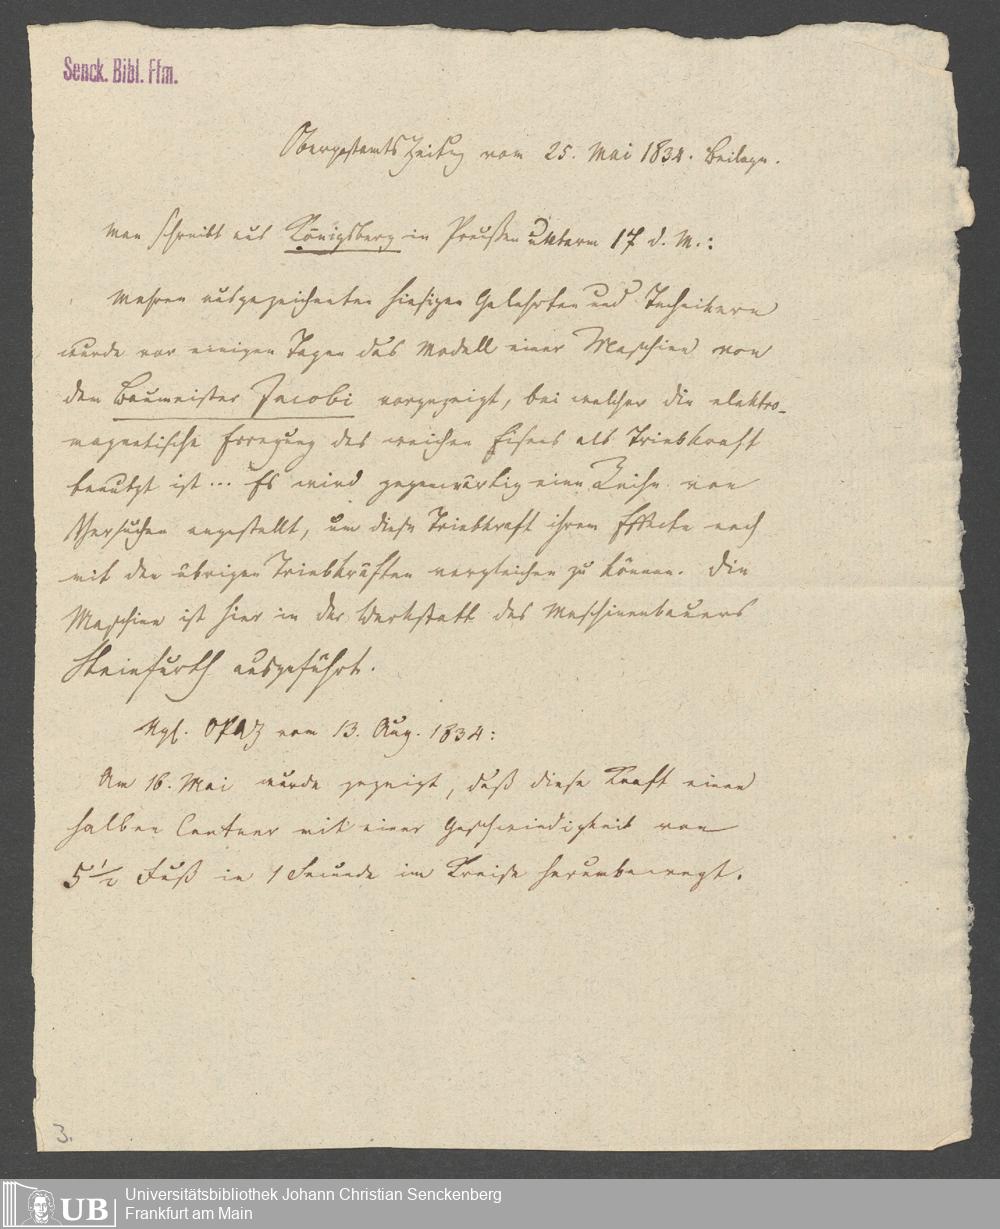 Senck. Bibl. Ffm.
OberpostamtsZeitung vom 25. Mai 1834. Beilage.
Man schreibt aus Königsberg in Preußen unterm 17 d. M.:
Mehren ausgezeichneten hiesigen Gelehrten und Technikern
wurde vor einigen Tagen das Modell einer Maschine von
dem Baumeister Jacobi vorgezeigt, bei welcher die elektro-
magnetische Erregung des weichen Eisens als Triebkraft
benutzt ist... Es wird gegenwärtig eine Reihe von
Versuchen angestellt, um diese Triebkraft ihrem Effecte nach
mit den übrigen Triebkräften vergleichen zu können. Die
Maschine ist hier in der Werkstatt des Maschinenbauers
Steinfurth ausgeführt.
Vgl. OPAZ vom 13. Aug. 1834:
Am 16. Mai wurde gezeigt, daß diese Kraft einen
halben Centner mit einer Geschwindigkeit von
5 1/2 Fuß in 1 Secunde im Kreise herumbewegt.
3.
UB
Universitätsbibliothek Johann Christian Senckenberg
Frankfurt am Main